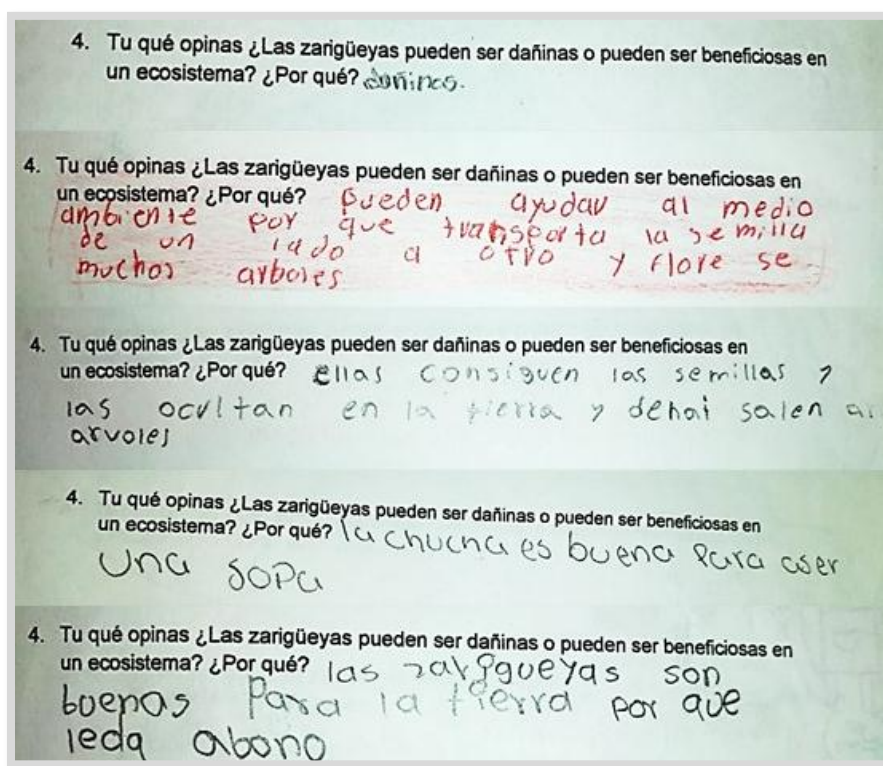 4. Tu qué opinas ¿Las zarigüeyas pueden ser dañinas o pueden ser beneficiosas en
un ecosistema? ¿Por qué? dañinas.
4. Tu qué opinas ¿Las zarigüeyas pueden ser dañinas o pueden ser beneficiosas en
un ecosistema? ¿Por qué? Pueden ayudar al medio
ambiente por que transporta la semilla
de un lado a otro y flore se
muchos arboles
4. Tu qué opinas ¿Las zarigüeyas pueden ser dañinas o pueden ser beneficiosas en
un ecosistema? ¿Por qué? Ellas consiguen las semillas y
las ocultan en la tierra y dehai salen
arvoles
4. Tu qué opinas ¿Las zarigüeyas pueden ser dañinas o pueden ser beneficiosas en
un ecosistema? ¿Por qué? la chucha es buena para aser
una sopa
4. Tu qué opinas ¿Las zarigüeyas pueden ser dañinas o pueden ser beneficiosas en
un ecosistema? ¿Por qué? las zarigueyas son
buenas Para la tierra por que
leda abono